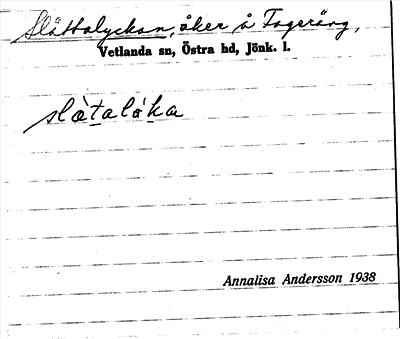 Slättalyckan, åker å Fageräng,
Vetlanda sn, Östra hd, Jönk. l.
slàtalóka
Annalisa Andersson 1938